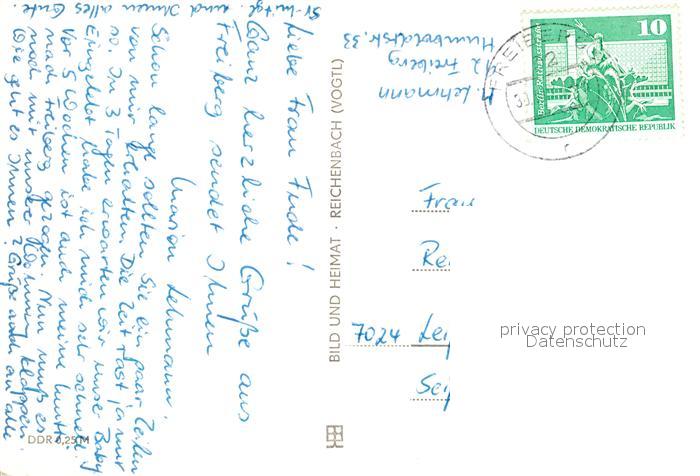 Liebe Frau Fude!
Ganz herzliche Grüße aus
Freiberg sendet Ihnen
Marion Lehmann.
Schon lange sollten Sie ein paar Zeilen
von mir erhalten. Die Zeit rast ja nur
so. In 3 Tagen erwarten wir unser Baby
Eingelebt habe ich mich sehr schnell.
Vor 5 Wochen ist auch meine Mutti
nach Freiberg gezogen. Nun muß es
noch mit unserer Wohnung klappen.
Wie geht es Ihnen? Grüße auch an alle
und Ihnen alles Gute.
M. Lehmann
92 Freiberg
Humboldtstr. 33
BILD UND HEIMAT · REICHENBACH (VOGTL)
DDR 0,25 M
FREIBERG
10
Berlin, Rathausstraße
DEUTSCHE DEMOKRATISCHE REPUBLIK
Frau
Re
7024 Lei
Sei
privacy protection
Datenschutz